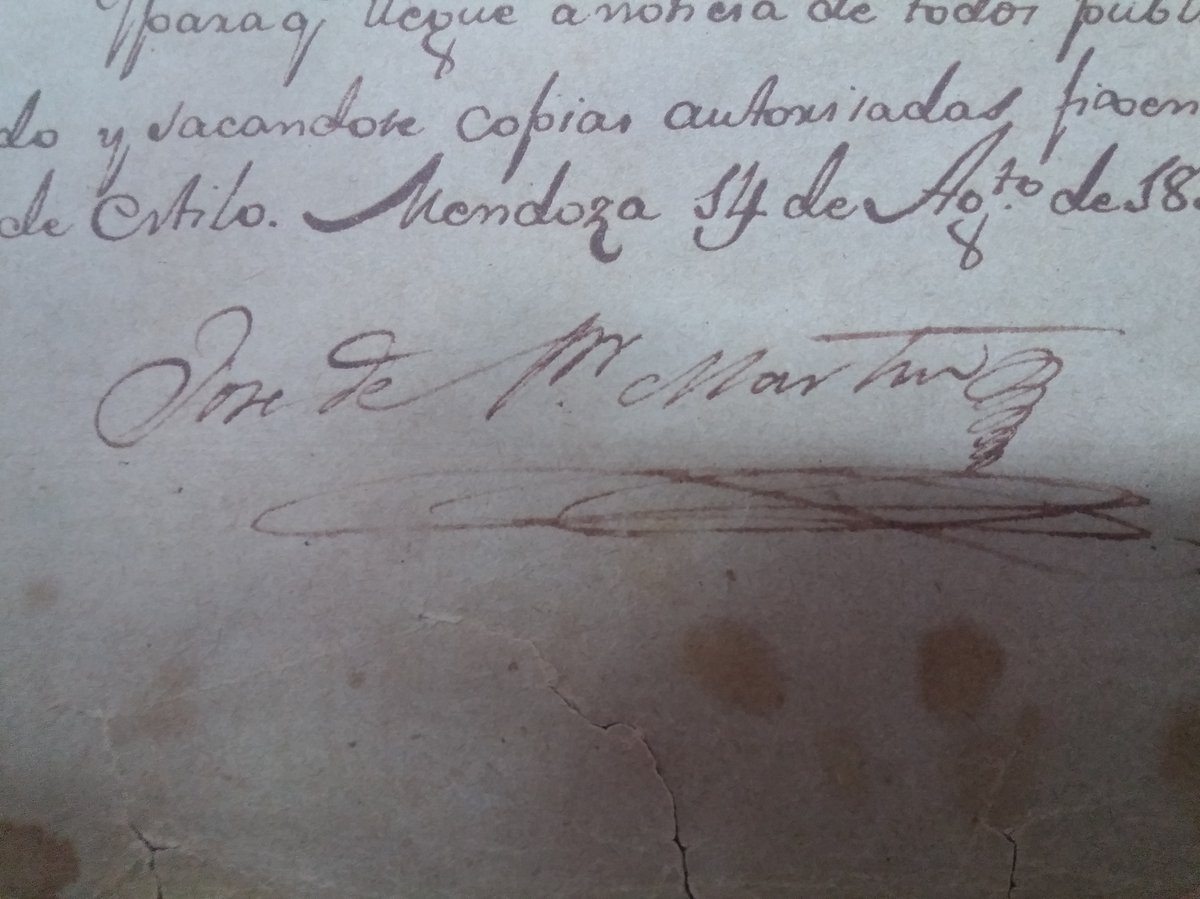 Yparaq llegue anoticia de todos publ
do y sacandose copias autorisadas fixen
de estilo. Mendoza 14 de Agto de 18
Jose de Sn Martin